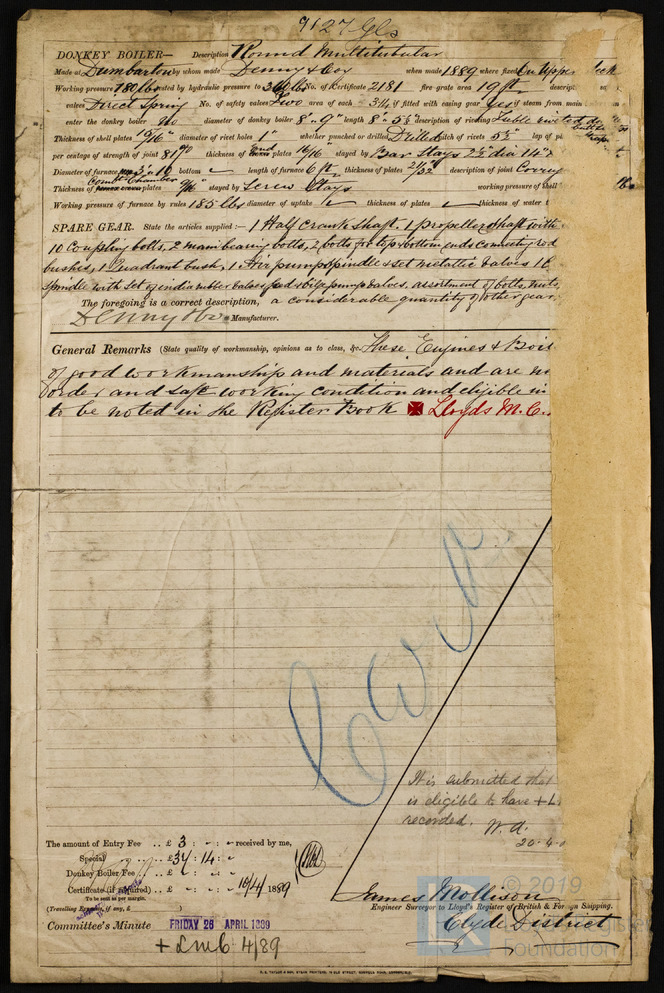 9127 Gls
DONKEY BOILER— Description Round Multitubular
Made at Dumbarton by whom made Denny & Coy when made 1889 where fixed On Upper Deck
Working pressure 180 lbs tested by hydraulic pressure to 360 lbs No. of Certificate 2181 fire-grate area 19 ft descript
valves Direct Spring No. of safety valves Two area of each 3¼ if fitted with easing gear yes if steam from main
enter the donkey boiler No diameter of donkey boiler 8' 9" length 8' 5½ description of riveting Double riveted
Thickness of shell plates 10/16" diameter of rivet holes 1" whether punched or drilled Drilled pitch of rivets 5½" lap of pl
per centage of strength of joint 81% thickness of end plates 16/16" stayed by Bar Stays 2½ dia 14"
Diameter of furnace 3' 10 bottom length of furnace 6 ft thickness of plates 21/32" description of joint Corrug
Thickness of Combn Chamber plates 9/16" stayed by Screw Stays working pressure of shell
Working pressure of furnace by rules 185 lbs diameter of uptake thickness of plates thickness of water t
SPARE GEAR. State the articles supplied:— 1 Half crank shaft. 1 propeller shaft with
10 coupling bolts, 2 main bearing bolts, 2 bolts for top & bottom ends connectg rod
bushes, 1 Quadrant bush, 1 Air pump spindle & set metallic valves 1
spindle with set of india rubber valves feed & bilge pump valves. assortment of bolts, nuts,
The foregoing is a correct description, a considerable quantity of other gear,
Denny & Co Manufacturer.
General Remarks (State quality of workmanship, opinions as to class, &c. These Engines & Boil
of good workmanship and materials and are in
order and safe working condition and eligible in
to be noted in the Register Book ✠ Lloyds M.C.
It is submitted that
is eligible to have + L
recorded.
20-4-
The amount of Entry Fee .. £ 3 : - : - received by me,
Special .. £ 34 : 14 : -
Donkey Boiler Fee .. £
Certificate (if required) .. £ - : - : - 10/4/ 1889
To be sent as per margin.
(Travelling Expenses, if any, £ )
James Mollison
Engineer Surveyor to Lloyd's Register of British & Foreign Shipping.
Clyde District
Committee's Minute FRIDAY 26 APRIL 1889
+ LMC 4/89
© 2019
Foundation